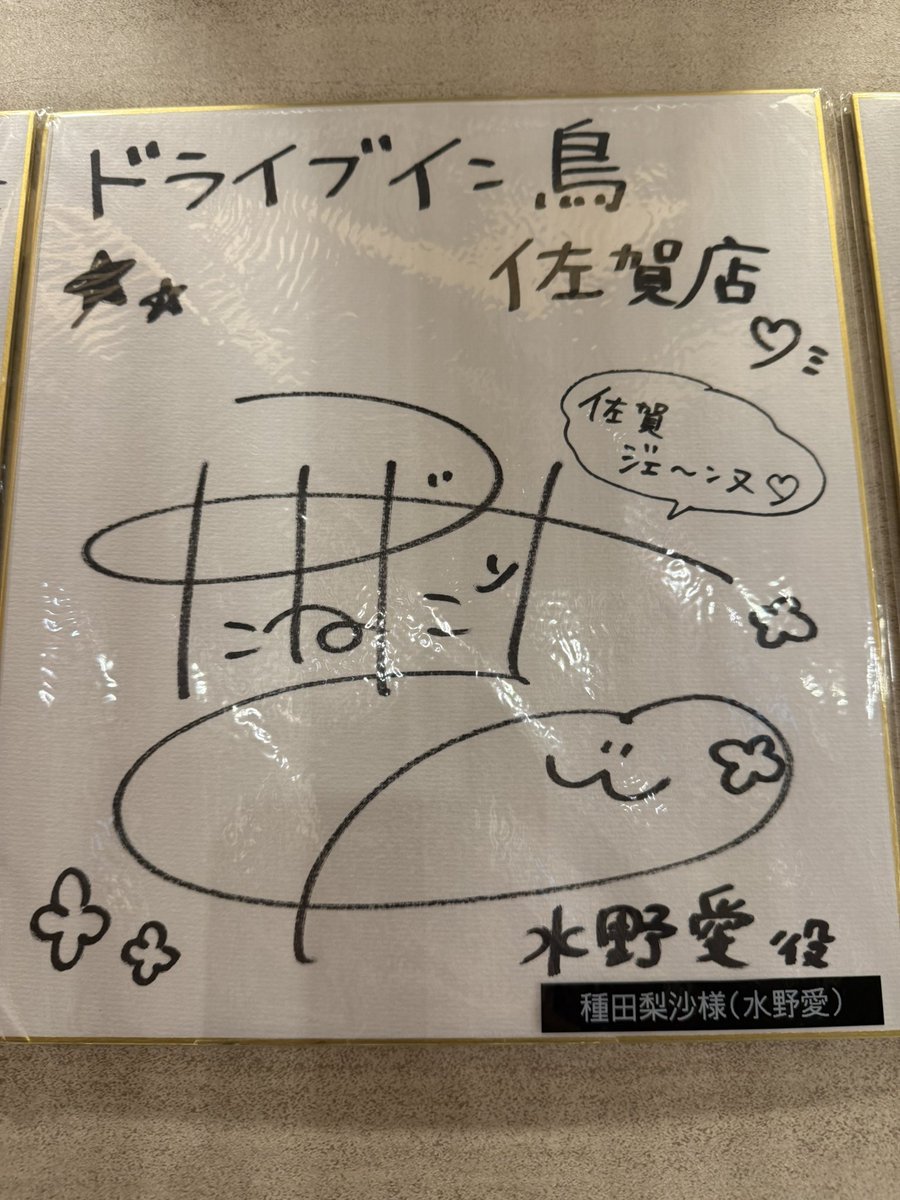 ドライブイン鳥
佐賀店
佐賀
ジェ〜ンヌ♡
水野愛役
種田梨沙様(水野愛)